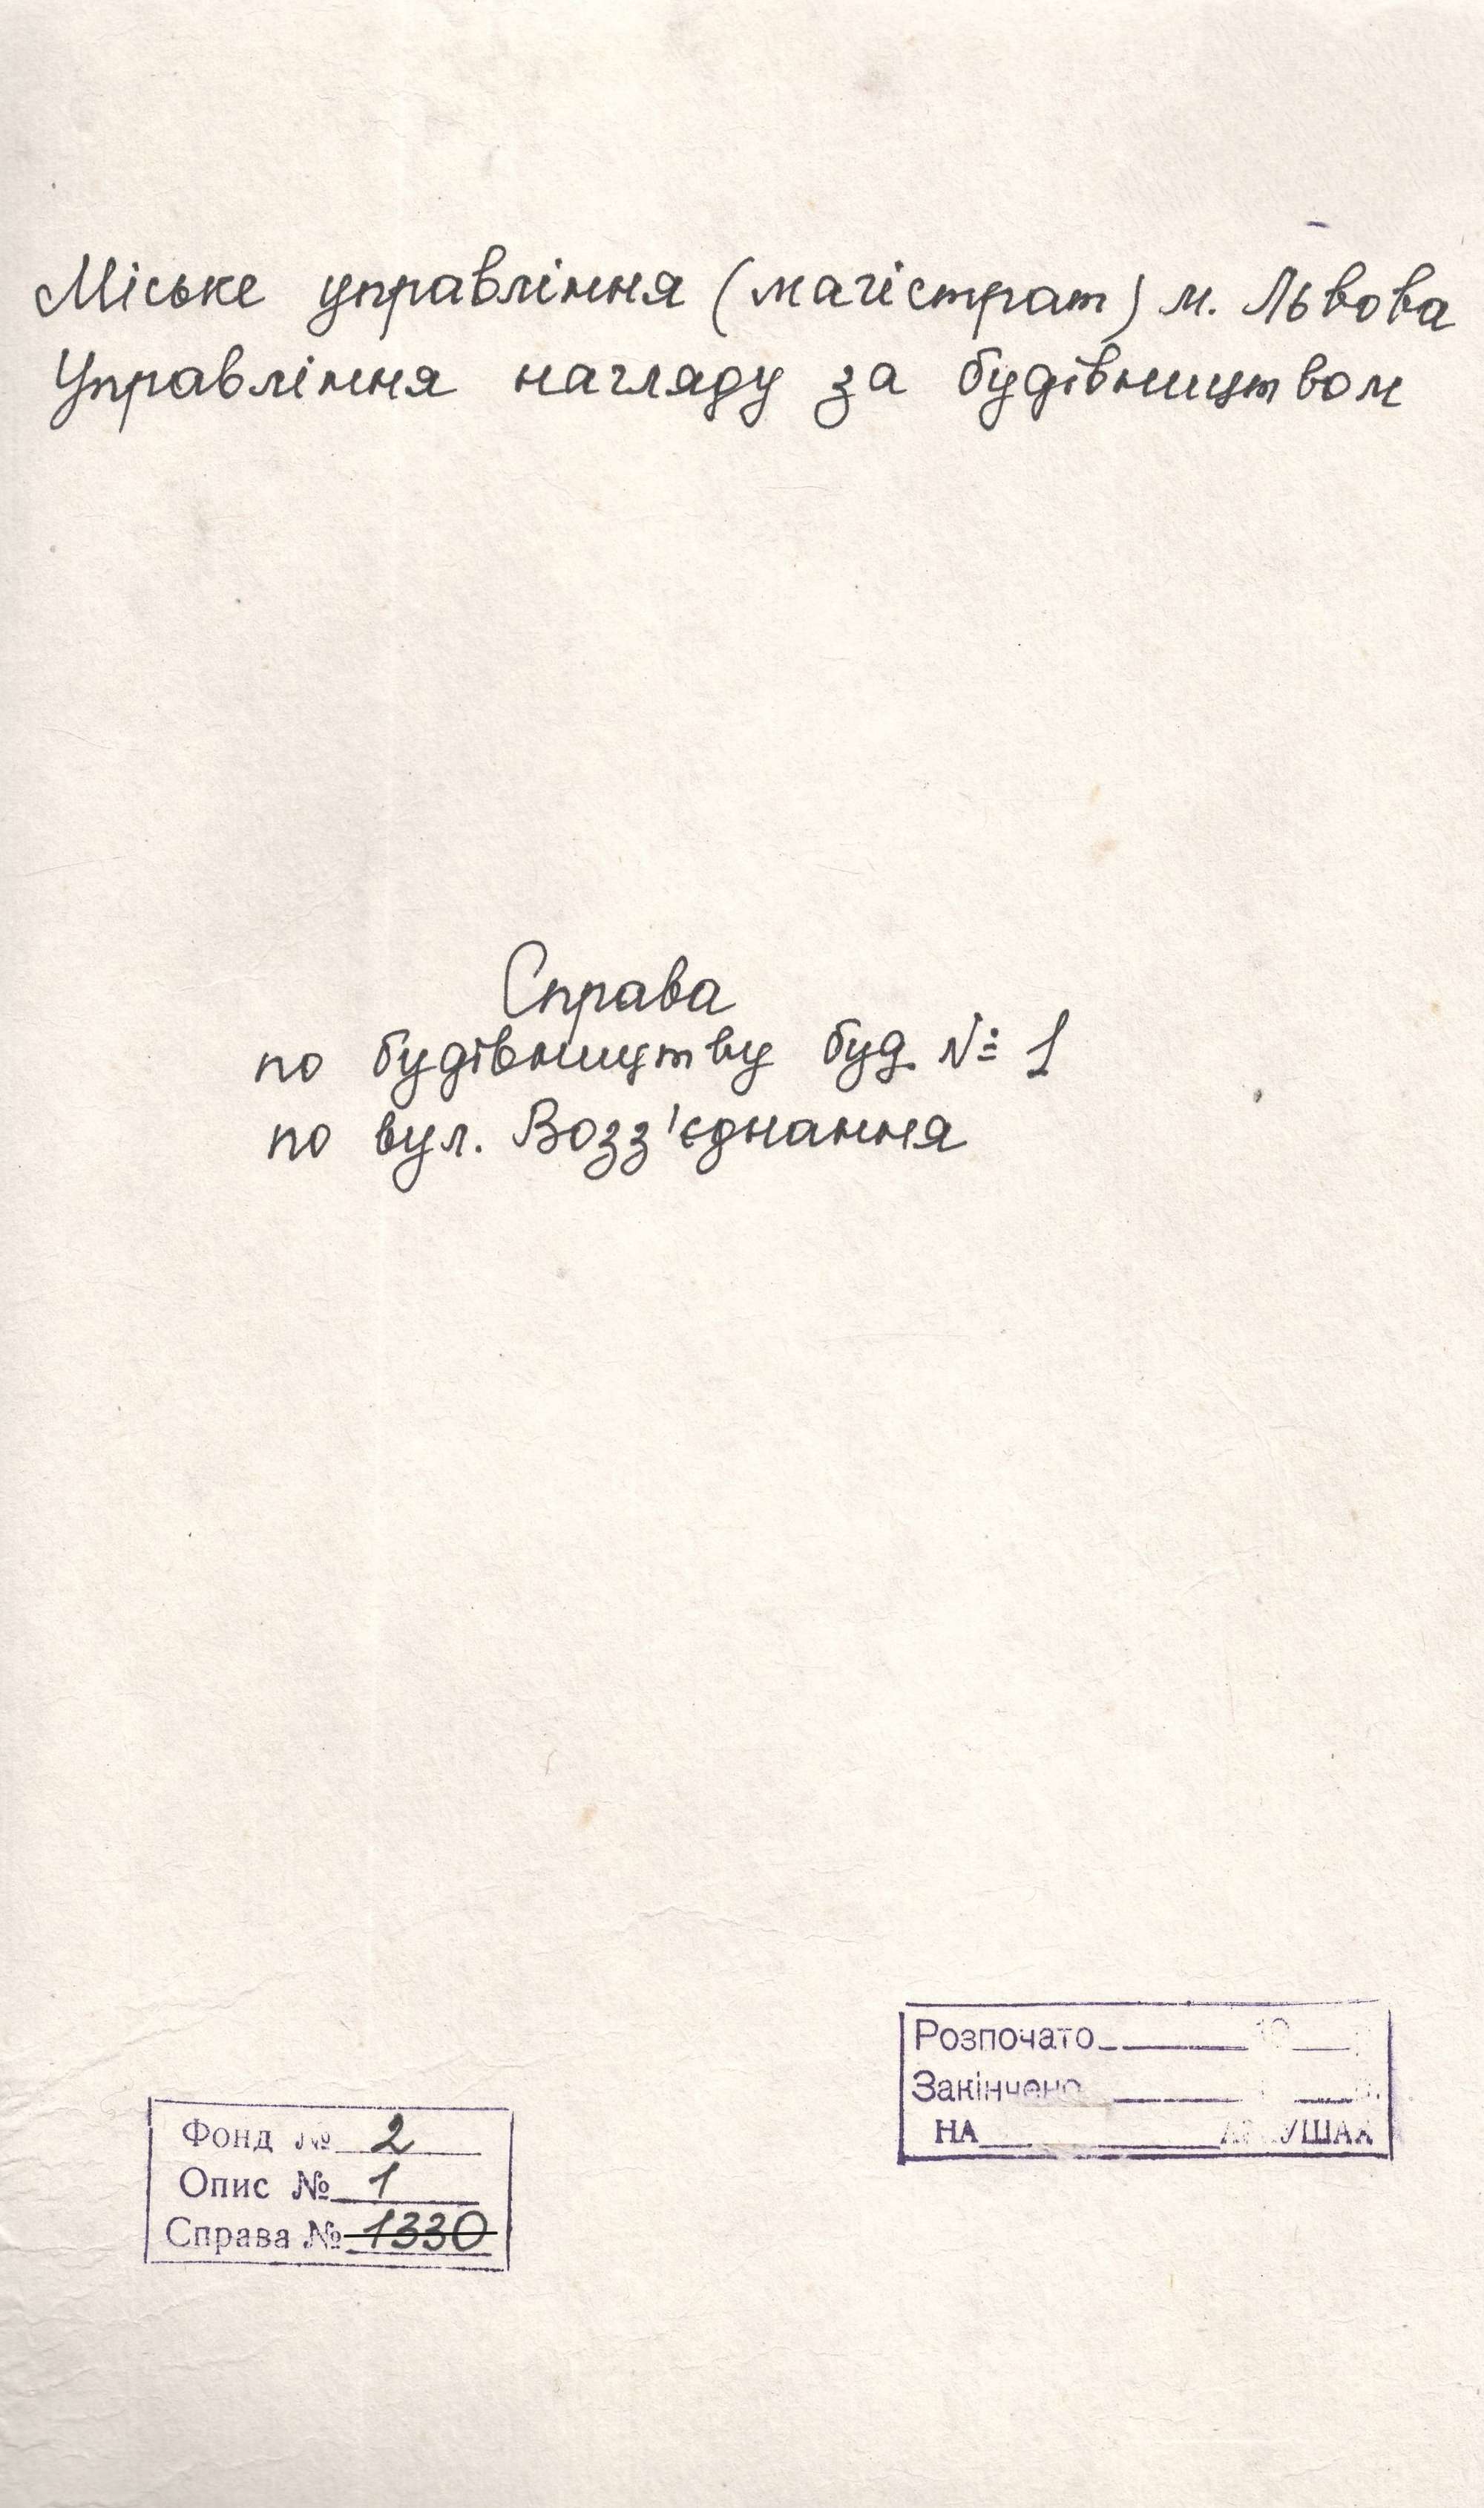 Міське управління (магістрат) м. Львова
Управління нагляду за будівництвом
Справа
по будівництву буд. № 1
по вул. Возз'єднання
Розпочато
Закінчено
НА АРКУШАХ
Фонд № 2
Опис № 1
Справа № 1330